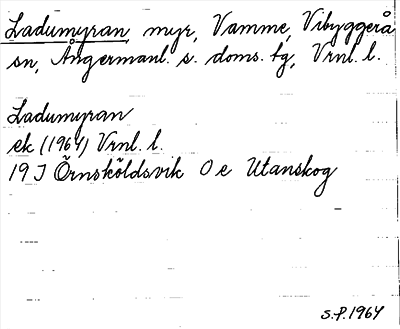 Ladumyran, myr, Vamme, Vibyggerå
sn, Ångermanl. s. doms. tg, Vrnl. l.
Ladumyran
ek (1964) Vrnl. l.
19 J Örnsköldsvik O e Utanskog
S.P. 1964